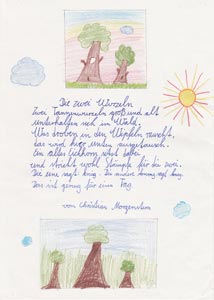 Die zwei Wurzeln
Zwei Tannenwurzeln groß und alt
unterhalten sich im Wald.
Was droben in den Wipfeln rauscht,
das wird hier unten ausgetauscht.
Ein altes Eichhorn sitzt dabei
und strickt wohl Strümpfe für die zwei.
Die eine sagt: knig. Die andre sagt: knag.
Das ist genug für einen Tag.
von Christian Morgenstern